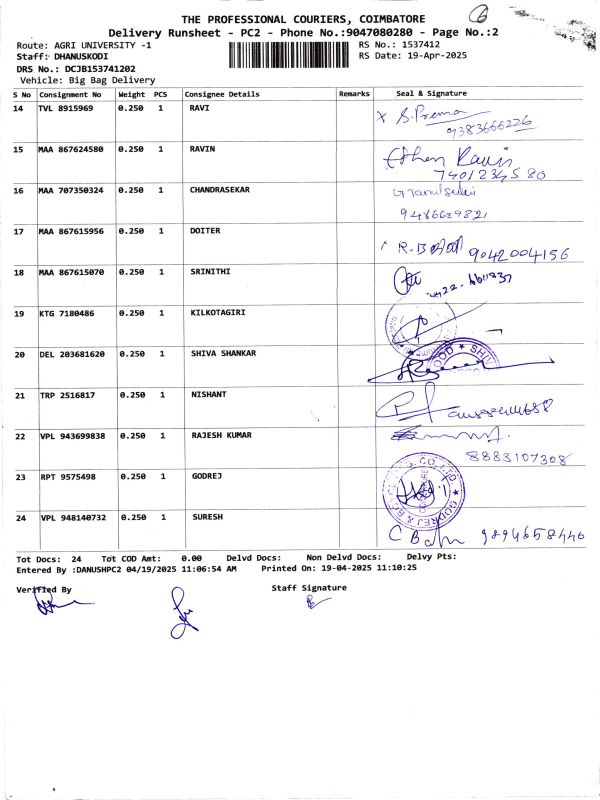 THE PROFESSIONAL COURIERS, COIMBATORE
Delivery Runsheet - PC2 - Phone No.:9047080280 - Page No.:2
6
Route: AGRI UNIVERSITY -1
RS No.: 1537412
Staff: DHANUSKODI
RS Date: 19-Apr-2025
DRS No.: DCJB153741202
Vehicle: Big Bag Delivery
S No Consignment No Weight PCS Consignee Details Remarks Seal & Signature
14 TVL 8915969 0.250 1 RAVI x S.Prema
9383666226
15 MAA 867624580 0.250 1 RAVIN
7401234580
16 MAA 707350324 0.250 1 CHANDRASEKAR
9486629821
17 MAA 867615956 0.250 1 DOITER R-B 9042004156
18 MAA 867615070 0.250 1 SRINITHI
19 KTG 7180486 0.250 1 KILKOTAGIRI
20 DEL 203681620 0.250 1 SHIVA SHANKAR
OOD ★ SHIV
21 TRP 2516817 0.250 1 NISHANT
22 VPL 943699838 0.250 1 RAJESH KUMAR
8883107308
23 RPT 9575498 0.250 1 GODREJ
CO. LTD. ★ GODREJ &
24 VPL 948140732 0.250 1 SURESH C Babu 9894658446
Tot Docs: 24 Tot COD Amt: 0.00 Delvd Docs: Non Delvd Docs: Delvy Pts:
Entered By :DANUSHPC2 04/19/2025 11:06:54 AM Printed On: 19-04-2025 11:10:25
Verified By
Staff Signature